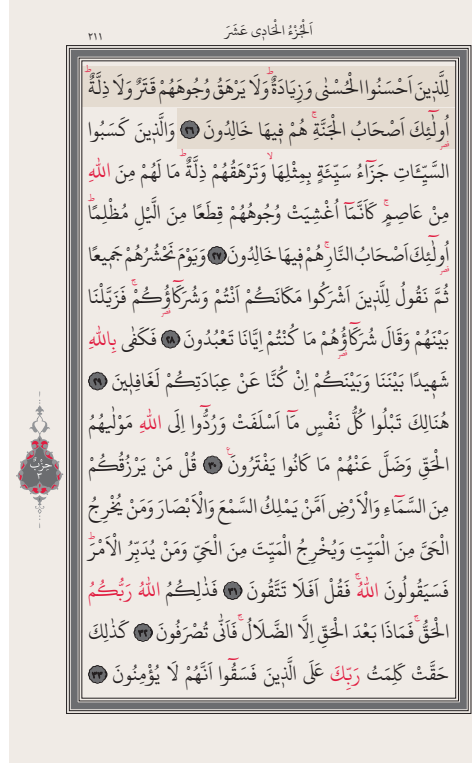 اَلْجُزْءُ الْحَادِى عَشَرَ
٢١١
لِلَّذ۪ينَ اَحْسَنُوا الْحُسْنٰى وَزِيَادَةٌۜ وَلَا يَرْهَقُ وُجُوهَهُمْ قَتَرٌ وَلَا ذِلَّةٌۜ
اُو۬لٰٓئِكَ اَصْحَابُ الْجَنَّةِۚ هُمْ ف۪يهَا خَالِدُونَ ﴿٢٦﴾ وَالَّذ۪ينَ كَسَبُوا
السَّيِّـَٔاتِ جَزَٓاءُ سَيِّئَةٍ بِمِثْلِهَاۙ وَتَرْهَقُهُمْ ذِلَّةٌۜ مَا لَهُمْ مِنَ اللّٰهِ
مِنْ عَاصِمٍۚ كَاَنَّمَٓا اُغْشِيَتْ وُجُوهُهُمْ قِطَعًا مِنَ الَّيْلِ مُظْلِمًاۜ
اُو۬لٰٓئِكَ اَصْحَابُ النَّارِۚ هُمْ ف۪يهَا خَالِدُونَ ﴿٢٧﴾ وَيَوْمَ نَحْشُرُهُمْ جَم۪يعًا
ثُمَّ نَقُولُ لِلَّذ۪ينَ اَشْرَكُوا مَكَانَكُمْ اَنْتُمْ وَشُرَكَٓاؤُ۬كُمْۚ فَزَيَّلْنَا
بَيْنَهُمْ وَقَالَ شُرَكَٓاؤُ۬هُمْ مَا كُنْتُمْ اِيَّانَا تَعْبُدُونَ ﴿٢٨﴾ فَكَفٰى بِاللّٰهِ
شَه۪يدًا بَيْنَنَا وَبَيْنَكُمْ اِنْ كُنَّا عَنْ عِبَادَتِكُمْ لَغَافِل۪ينَ ﴿٢٩﴾
هُنَالِكَ تَبْلُوا كُلُّ نَفْسٍ مَٓا اَسْلَفَتْ وَرُدُّٓوا اِلَى اللّٰهِ مَوْلٰيهُمُ
الْحَقِّ وَضَلَّ عَنْهُمْ مَا كَانُوا يَفْتَرُونَ۟ ﴿٣٠﴾ قُلْ مَنْ يَرْزُقُكُمْ
مِنَ السَّمَٓاءِ وَالْاَرْضِ اَمَّنْ يَمْلِكُ السَّمْعَ وَالْاَبْصَارَ وَمَنْ يُخْرِجُ
الْحَيَّ مِنَ الْمَيِّتِ وَيُخْرِجُ الْمَيِّتَ مِنَ الْحَيِّ وَمَنْ يُدَبِّرُ الْاَمْرَۜ
فَسَيَقُولُونَ اللّٰهُۚ فَقُلْ اَفَلَا تَتَّقُونَ ﴿٣١﴾ فَذٰلِكُمُ اللّٰهُ رَبُّكُمُ
الْحَقُّۚ فَمَاذَا بَعْدَ الْحَقِّ اِلَّا الضَّلَالُۚ فَاَنّٰى تُصْرَفُونَ ﴿٣٢﴾ كَذٰلِكَ
حَقَّتْ كَلِمَتُ رَبِّكَ عَلَى الَّذ۪ينَ فَسَقُٓوا اَنَّهُمْ لَا يُؤْمِنُونَ ﴿٣٣﴾
حِزْب